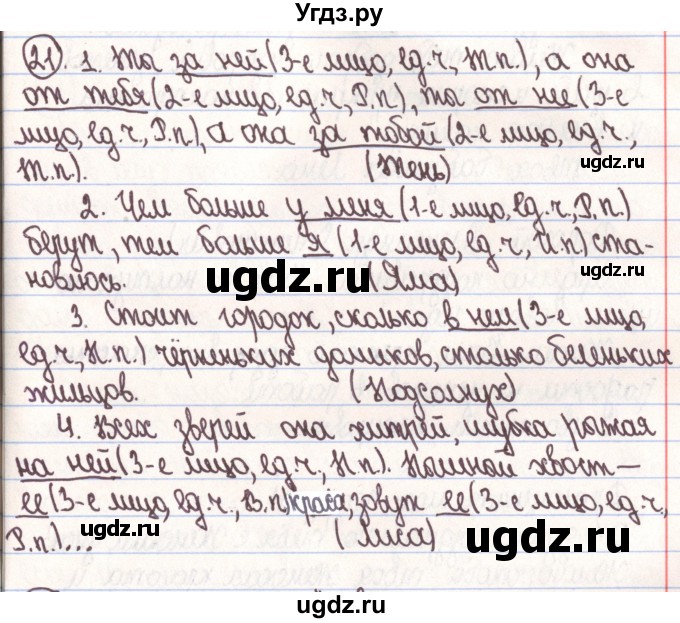 Угдз.ру
21 1. Ты за ней (3-е лицо, ед.ч., Т.п.), а она
от тебя (2-е лицо, ед.ч., Р.п.), ты от неё (3-е
лицо, ед.ч., Р.п.), а она за тобой (2-е лицо, ед.ч.,
Т.п.). (Тень)
ugdz.ru
2. Чем больше у меня (1-е лицо, ед.ч., Р.п.)
берут, тем больше я (1-е лицо, ед.ч., И.п.) ста-
новлюсь.
ugdz.ru
3. Стоит городок, сколько в нём (3-е лицо,
ед.ч., П.п.) чёрненьких домиков, столько беленьких
жильцов. (Подсолнух)
ugdz.ru
4. Всех зверей она хитрей, шубка рыжая
на ней (3-е лицо, ед.ч., П.п.). Пышный хвост –
ugdz.ru
её (3-е лицо, ед.ч., В.п.) краса, зовут её (3-е лицо, ед.ч.,
Р.п.)... лиса)
ugdz.ru
ugdz.ru
ugdz.ru